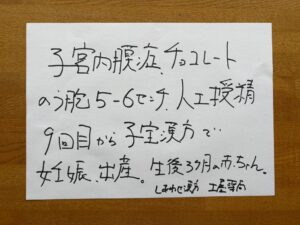 子宮内膜症、チョコレート
のう胞5-6センチ、人工授精
9回目から子宝漢方で
妊娠、出産。生後3ヶ月の赤ちゃん。
しあわせ漢方 土屋薬局